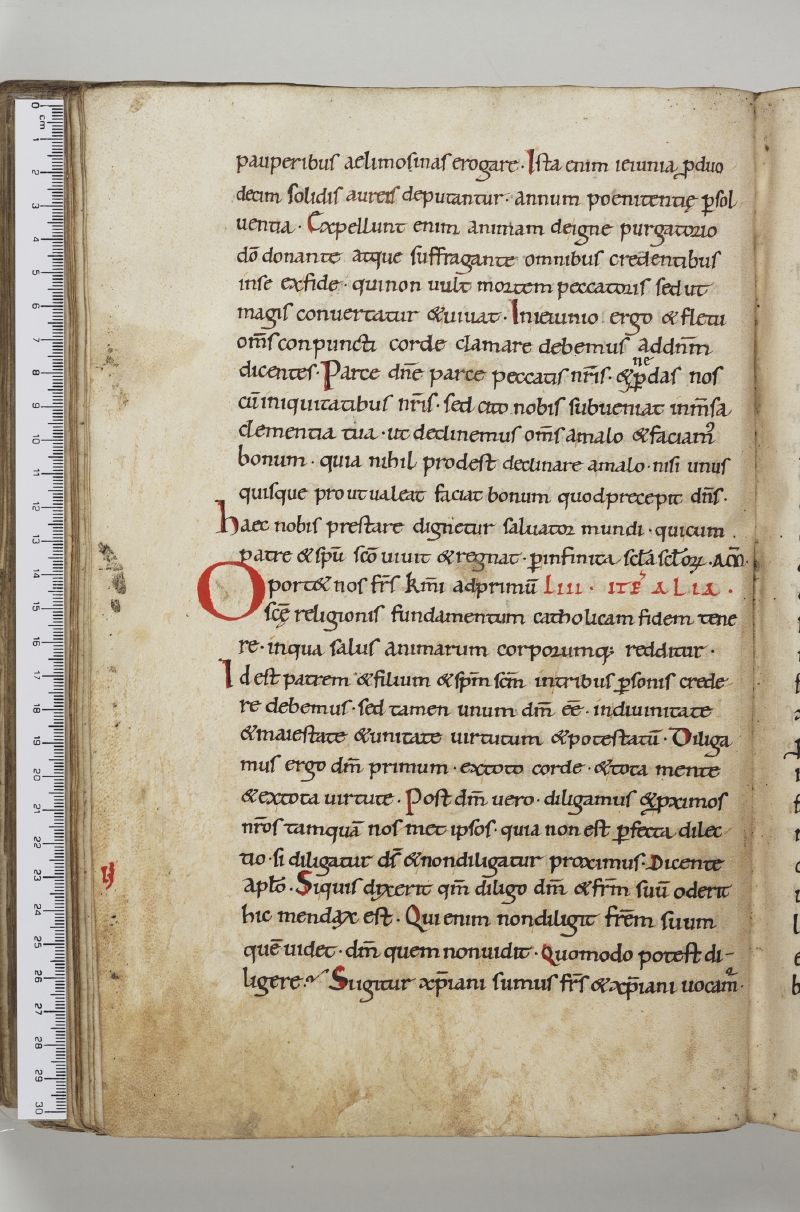 pauperibus aelimosinas erogare. Ista enim ieiunia p̱duo
decim solidis aureis deputantur. annum poenitentię p̱sol
uentia. Expellunt enim animam deigne purgatorio
dō donante atque suffragante omnibus credentibus
inse exfide. quinon uult mortem peccatoris sedut
magis conuertatur &uiuat. Inieiunio ergo &fletu
om̄s conpuncti corde clamare debemus addn̄m
dicentes. Parce dn̄e parce peccatis nr̄is. & ne p̱das nos
cū iniquitatibus nr̄is. sed cito nobis subueniat inm̄sa
clementia tua. ut declinemus om̄s amalo &faciam᷒
bonum. quia nihil prodest declinare amalo. nisi unus
quisque prout ualeat faciat bonum quodprecepit dn̄s.
haec nobis prestare dignetur saluator mundi. quicum
patre &spū sc̄o uiuit &regnat. p̱infinita scl̄a scl̄oꝝ. AM̄.
Oport& nos fr̄s km̄i adprimū LIII. ITĒ ALIA.
sc̄ę religionis fundamentum catholicam fidem tene
re. inqua salus animarum corporumq; redditur.
Id est patrem &filium &sp̄m sc̄m intribus p̱sonis crede
re debemus. sed tamen unum dm̄ eē. indiuinitate
&maiestate &unitate uirtutum &potestatū. Diliga
mus ergo dm̄ primum. extoto corde. &tota mente
&extota uirtute. Post dm̄ uero. diligamus &ꝓximos
nr̄os tamquā nos met ipsos. quia non est p̱fecta dilec
tio. si diligatur ds̄ &nondiligatur proximus. Dicente
aptō. Siquis dixerit qm̄ diligo dm̄ &fr̄m suū oderit
hic mendax est. Qui enim nondiligit fr̄em suum
quē uidet. dm̄ quem nonuidit. Quomodo potest di-
ligere? Sugitur xp̄iani sumus fr̄s &xp̄iani uocam᷒.